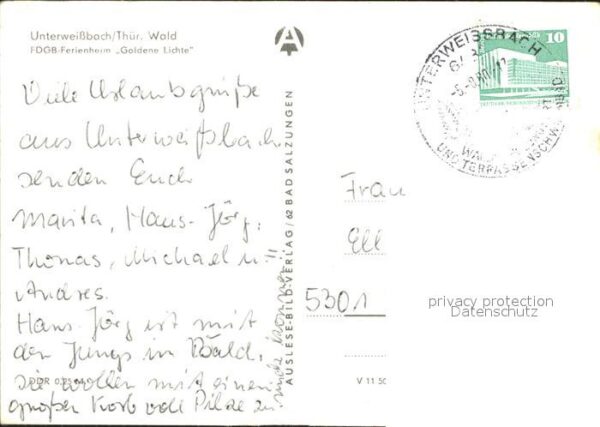 Unterweißbach/Thür. Wald
FDGB-Ferienheim „Goldene Lichte"
Viele Urlaubsgrüße
aus Unterweißbach
senden Euch
Marita, Hans-Jörg,
Thomas, Michael u.
Andres.
Hans-Jörg ist mit
den Jungs im Wald,
sie wollen mit einem
großen Korb voll Pilze zu-
rück kommen!!
DDR 0,25
AUSLESE-BILD-VERLAG / 62 BAD SALZUNGEN
V 11 50
UNTERWEISSBACH
10
Frau
Ell
5301
privacy protection
Datenschutz